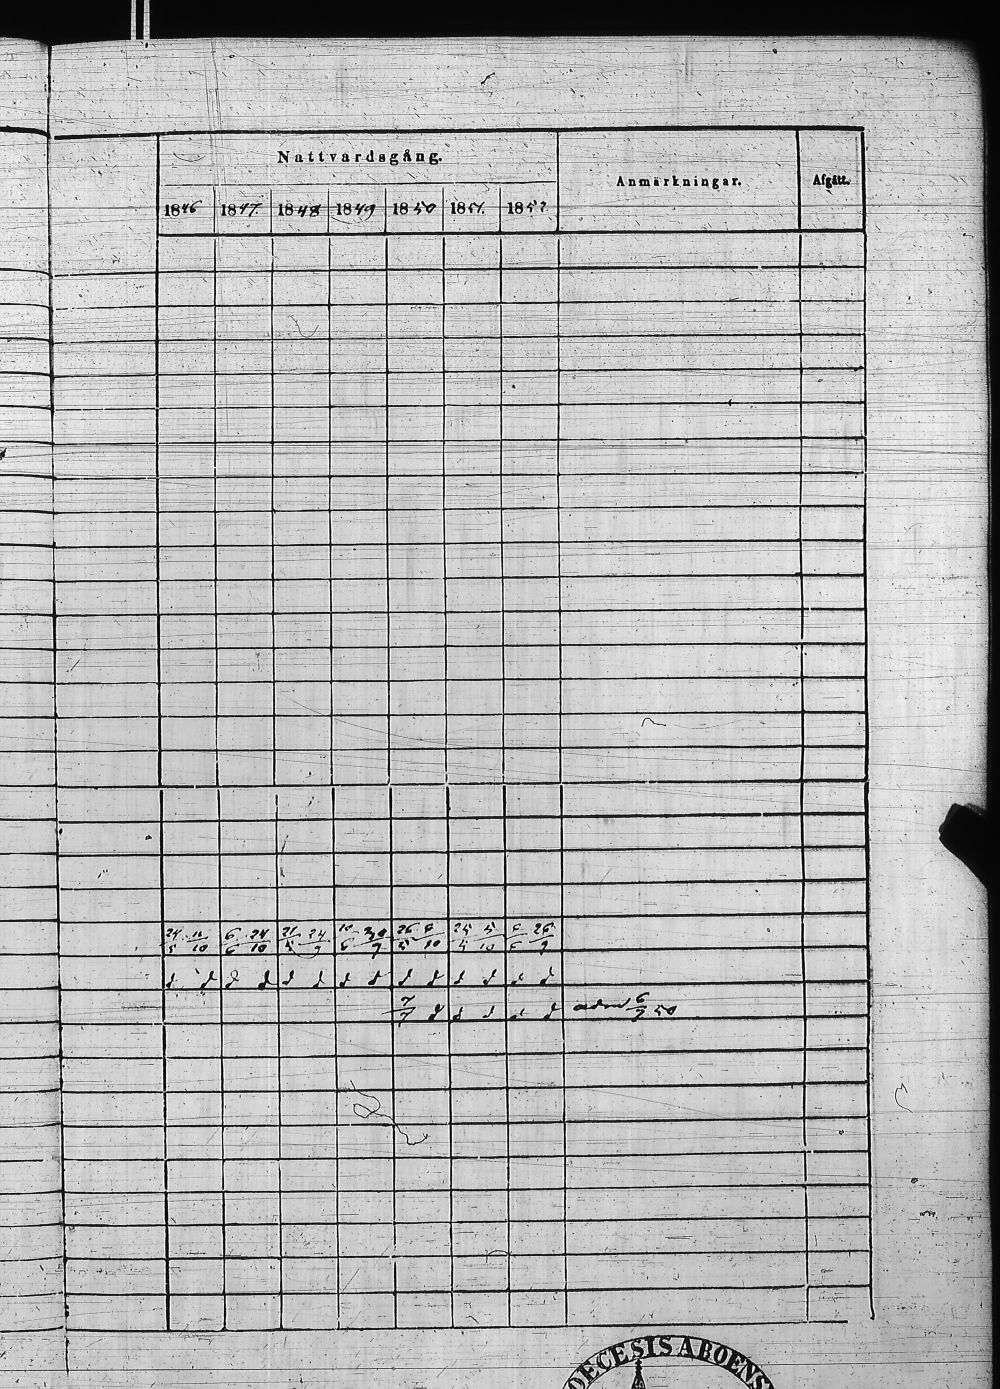 Nattvardsgång.
Anmärkningar.
Afgått.
1846 1847. 1848 1849 1850 1851. 1852
24/5 11/10 6/6 24/10 21/5 24/9 10/6 30/9 26/5 6/10 25/5 5/10 6/6 26/9
d d d d d d d d d d d d d d
7/7 d d d d d adm 6/7 50
DECESIS ABOENS